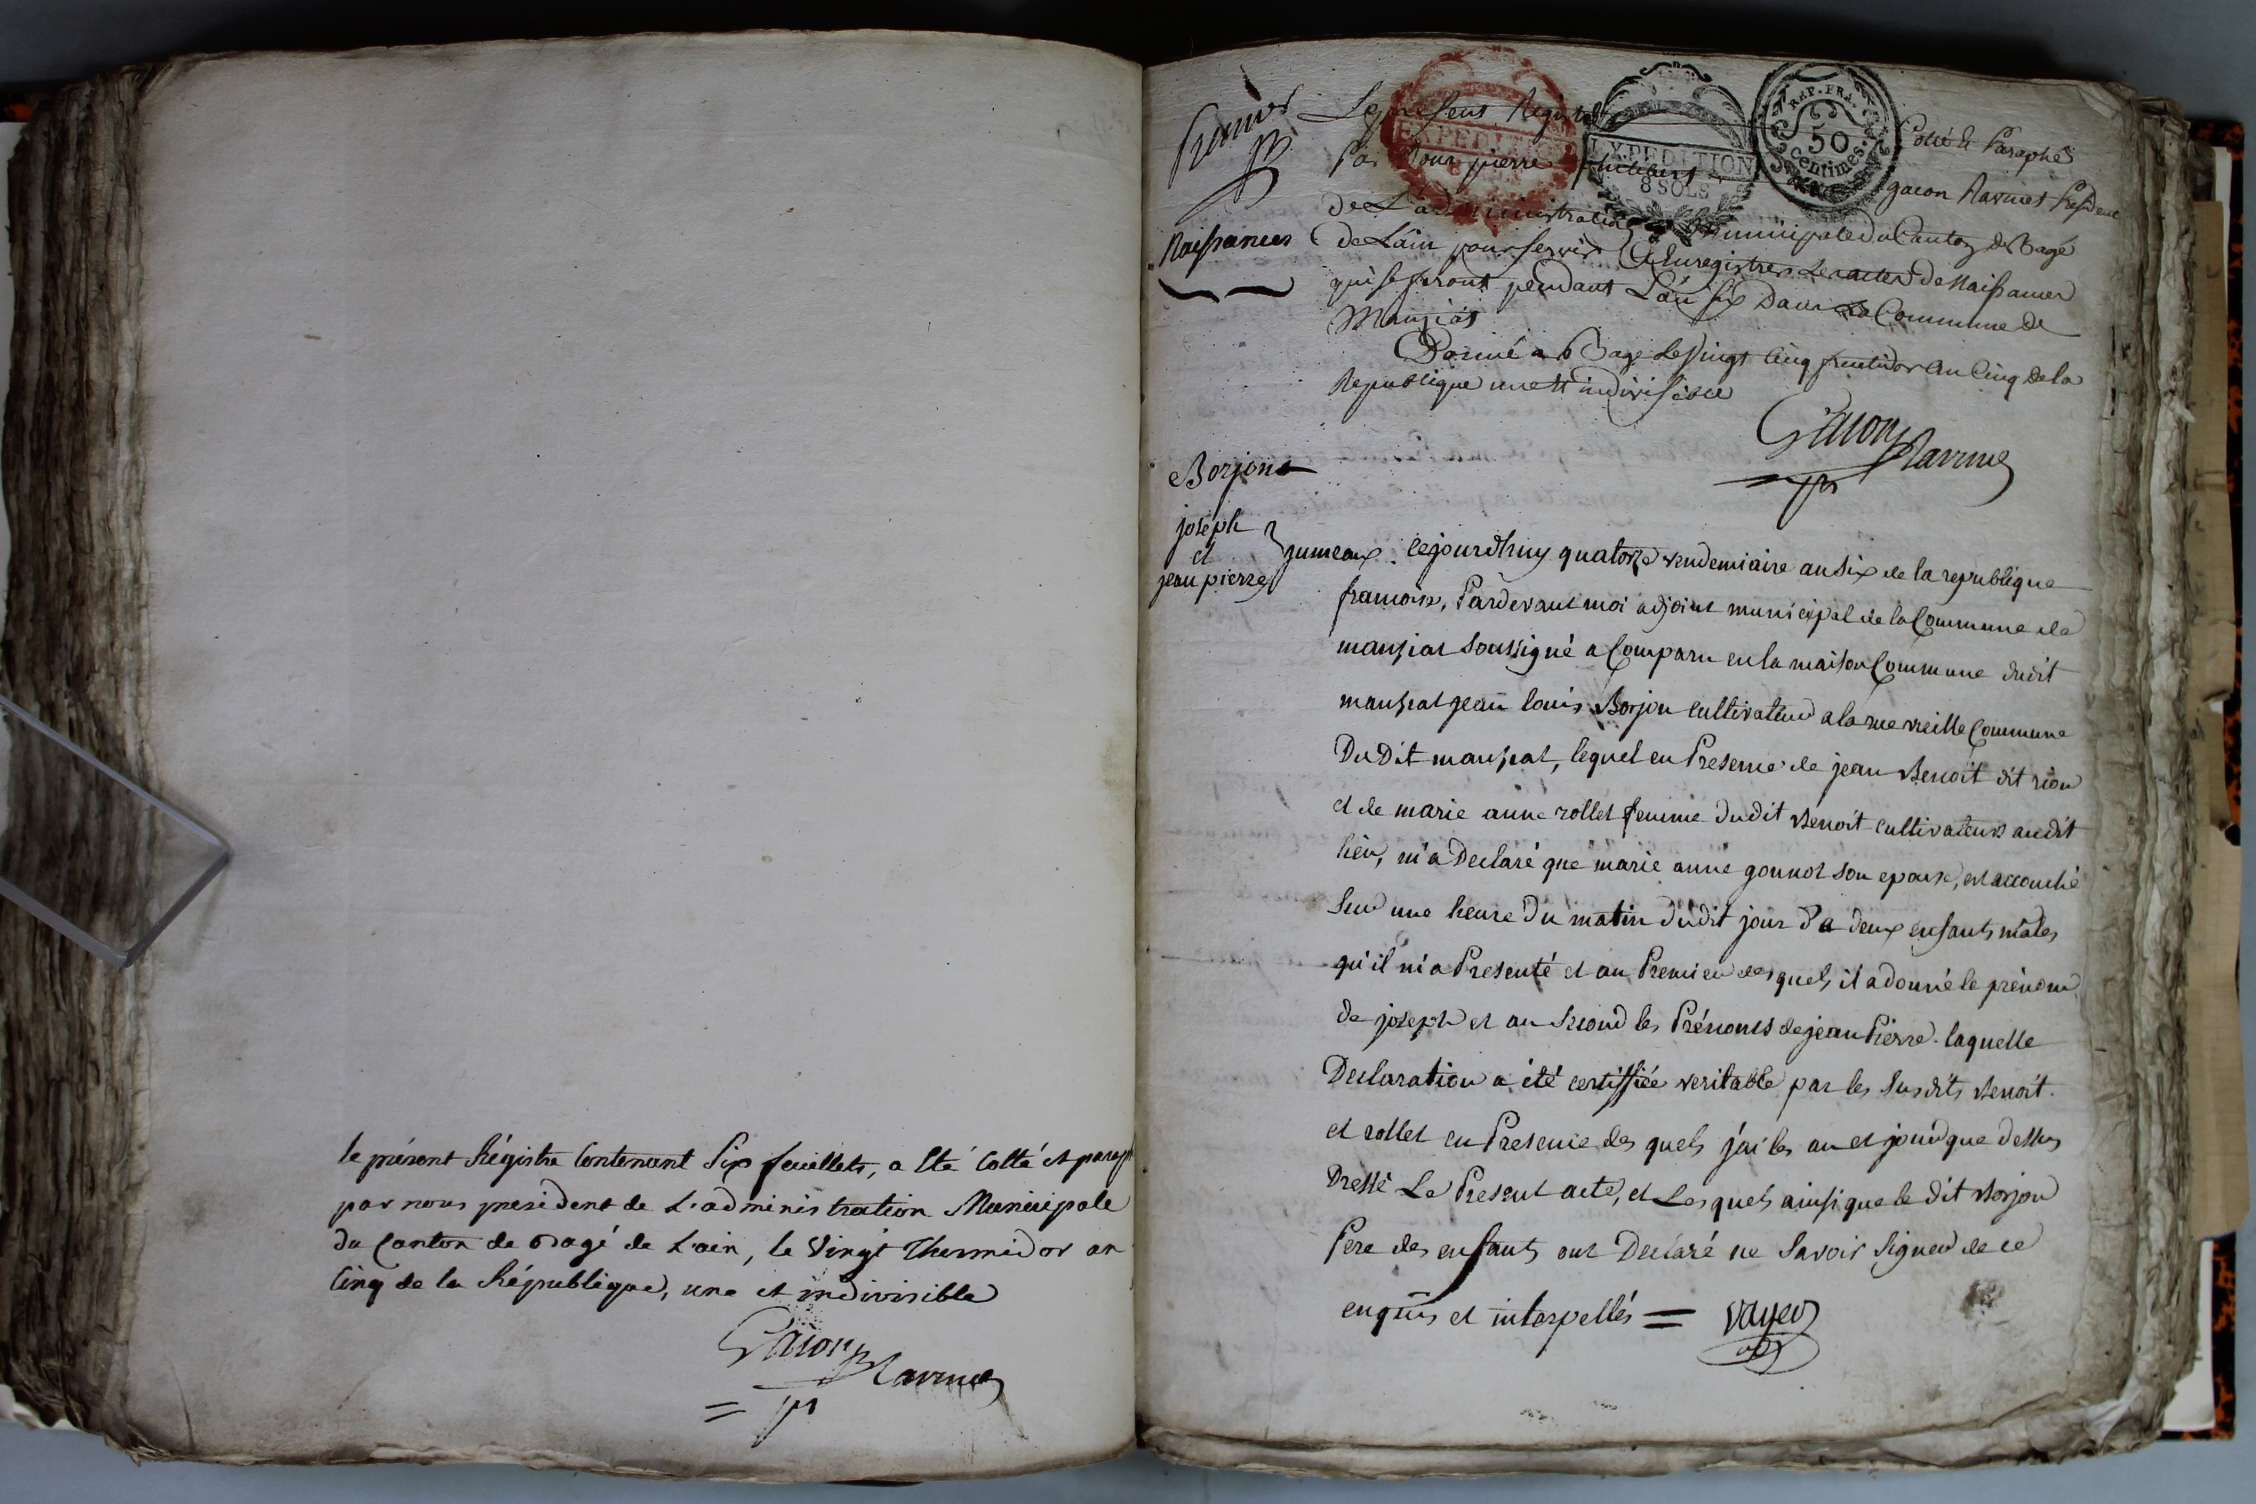 le présent Régistre Contenant Six feuillets, a été Cotté et paraph
par nous president de L'administration Municipale
du Canton de Bagé de L'ain, le Vingt Thermidor an
Cinq de la République, une et indivisible
Gacon Ravinet
Premier
Naissances
Le present Registre Cotté & Paraphé
Par Nous pierre gacon Ravinet President
de L'administration Municipale du Canton de Bagé
de L'ain pour servir à Enregistrer les actes de Naissances
qui se feront pendant L'an six Dans la Commune de
Manziat
Donné a Bagé le vingt Cinq fructidor an Cinq de la
Republique une et indivisible
Gacon Ravinet
EXPEDITION
EXPEDITION
8 SOLS
REP. FRA.
50
centimes.
Borjon
joseph
et
jean pierre
jumeaux. Cejourdhuy quatorze vendemiaire an six de la republique
francoise, Pardevant moi adjoint municipal de la Commune de
manziat soussigné a Comparu en la maison Commune dudit
manziat jean louis Borjon cultivateur a la rue vieille Commune
Du Dit manziat, lequel en Presence de jean Benoit dit rion
et de marie anne rollet femme dudit Benoit cultivateurs audit
lieu, m'a Declaré que marie anne gonnot son epouse, est accouché
sur une heure du matin dudit jour d'a deux enfants mâles
qu'il m'a Presenté et au Premier des quels il a donné le prénom
de joseph et au second les Prénoms de jean Pierre. laquelle
Declaration a été certiffiée veritable par les susdits Benoit
et rollet en Presence des quels j'ai les an et jour que dessus
Dressé Le Present acte, et Les quels ainsi que le dit Borjon
Pere des enfants ont Declaré ne savoir signer de ce
enquis et interpellés = Vayer